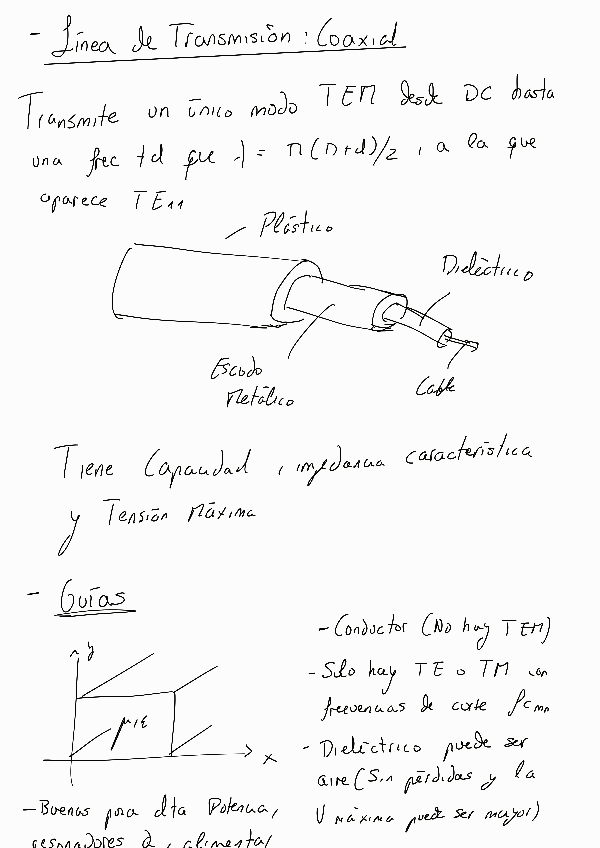 - Línea de Transmisión : Coaxial
Transmite un único modo TEM desde DC hasta
una frec td que λ = π(D+d)/2 , a la que
aparece TE11
Plástico
Dieléctrico
Escudo
Metálico
Cable
Tiene Capacidad , impedancia característica
y Tensión Máxima
- Guías
y
μ,ε
x
- Conductor (No hay TEM)
- Sólo hay TE o TM con
frecuencias de corte fcmn
- Dieléctrico puede ser
aire (Sin pérdidas y la
V máxima puede ser mayor)
- Buenas para alta Potencia,
resonadores o , alimentar